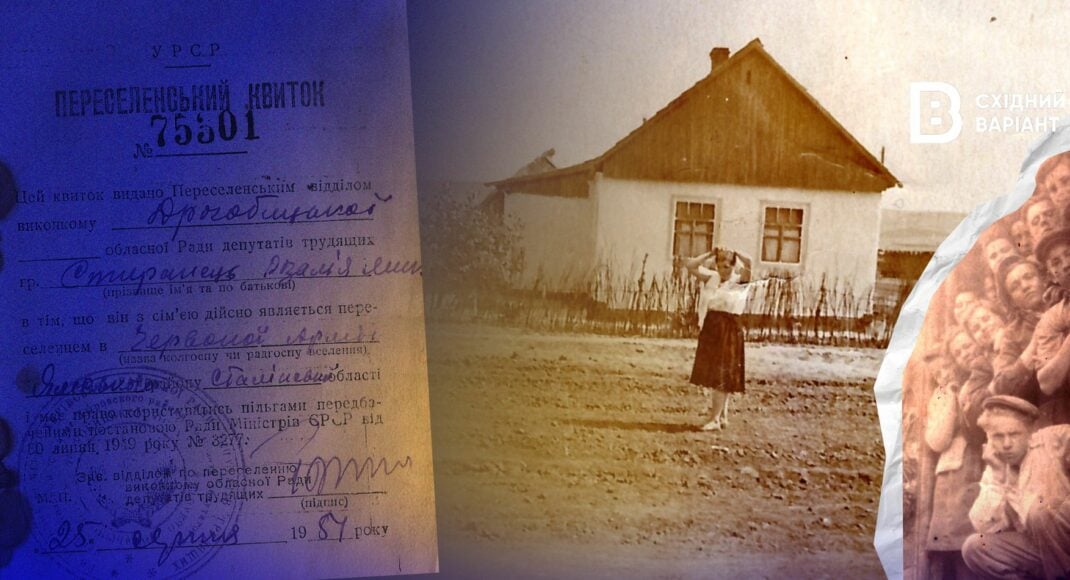 УРСР
ПЕРЕСЕЛЕНСЬКИЙ КВИТОК
№ 75501
Цей квиток видано Переселенським відділом
виконкому Дрогобицької
обласної Ради депутатів трудящих
гр.
(прізвище ім'я та по батькові)
в тім, що він з сім'єю дійсно является пере-
селенцем в Червоної Армії
(назва колгоспу чи радгоспу вселення)
району Сталінської області
і має право користуватись пільгами передба-
ченими постановою Ради Міністрів СРСР від
1949 року № 3277.
Зав. відділом по переселенню
виконкому обласної Ради
М. П. депутатів трудящих
(підпис)
25 серпня 1951 року
СХІДНИЙ
ВАРІАНТ